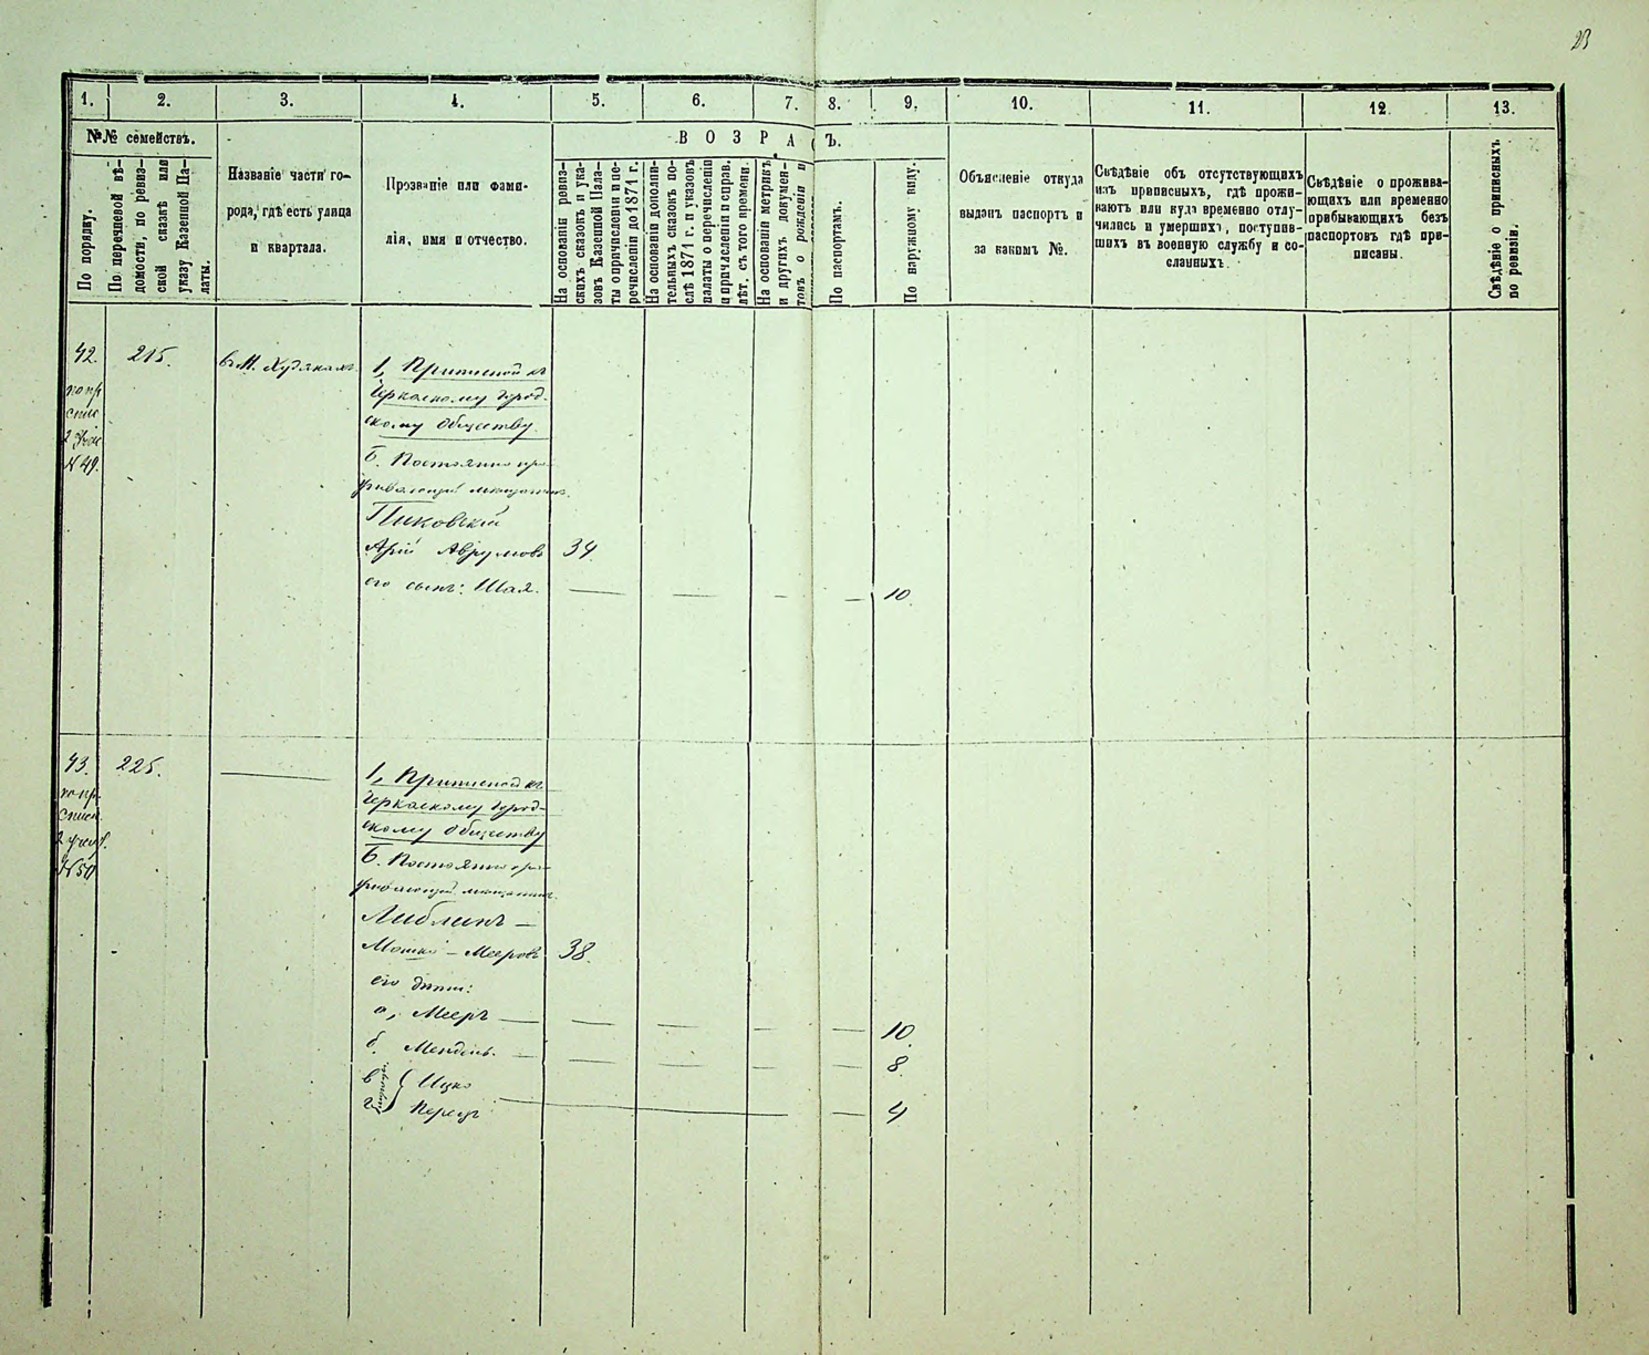 23
1. 2. 3. 4. 5. 6. 7. 8. 9. 10. 11. 12. 13.
№№ семействъ.
По порядку.
По перечневой вѣ-
домости, по ревиз-
ской сказкѣ или
указу Казенной Па-
латы.
Названіе части го-
рода, гдѣ есть улица
и квартала.
Прозваніе или фами-
лія, имя и отчество.
ВОЗРА Ъ.
На основаніи ревиз-
скихъ сказокъ и ука-
зовъ Казенной Пала-
ты о причисленіи и пе-
речисленіи до 1871 г.
На основаніи дополни-
тельныхъ сказокъ по-
слѣ 1871 г. и указовъ
палаты о перечисленіи
и причисленіи и справ.
лѣт. съ того времени.
На основаніи метрикъ
и другихъ докумен-
товъ о рожденіи и
По паспортамъ.
По наружному виду.
Объясненіе откуда
выданъ паспортъ и
за какимъ №.
Свѣдѣніе объ отсутствующихъ
изъ приписныхъ, гдѣ прожи-
ваютъ или куда временно отлу-
чились и умершихъ, поступив-
шихъ въ военную службу и со-
сланныхъ.
Свѣдѣніе о прожива-
ющихъ или временно
прибывающихъ безъ
паспортовъ гдѣ при-
писаны.
Свѣдѣніе о приписныхъ
по ревизіи.
42. 215. въ М. Худякахъ 1, Приписной къ
по пр
спис
N 49.
Черкаскому город-
скому обществу.
Б. Постоянно про-
живающій мещанинъ.
Пиковскій
Арій Аврумовъ 34.
его сынъ: Шая. — — — — 10.
43. 225. — 1, Приписной къ
по пр
списк
N 50
Черкаскому город-
скому обществу
Б. Постоянно про-
живающій мещанинъ.
Либлинъ —
Мошко — Мееровъ 38.
его дѣти:
а, Мееръ — — — — — 10.
б. Мендель. — — — — — 8.
в Ицко
г Перецъ — — 4